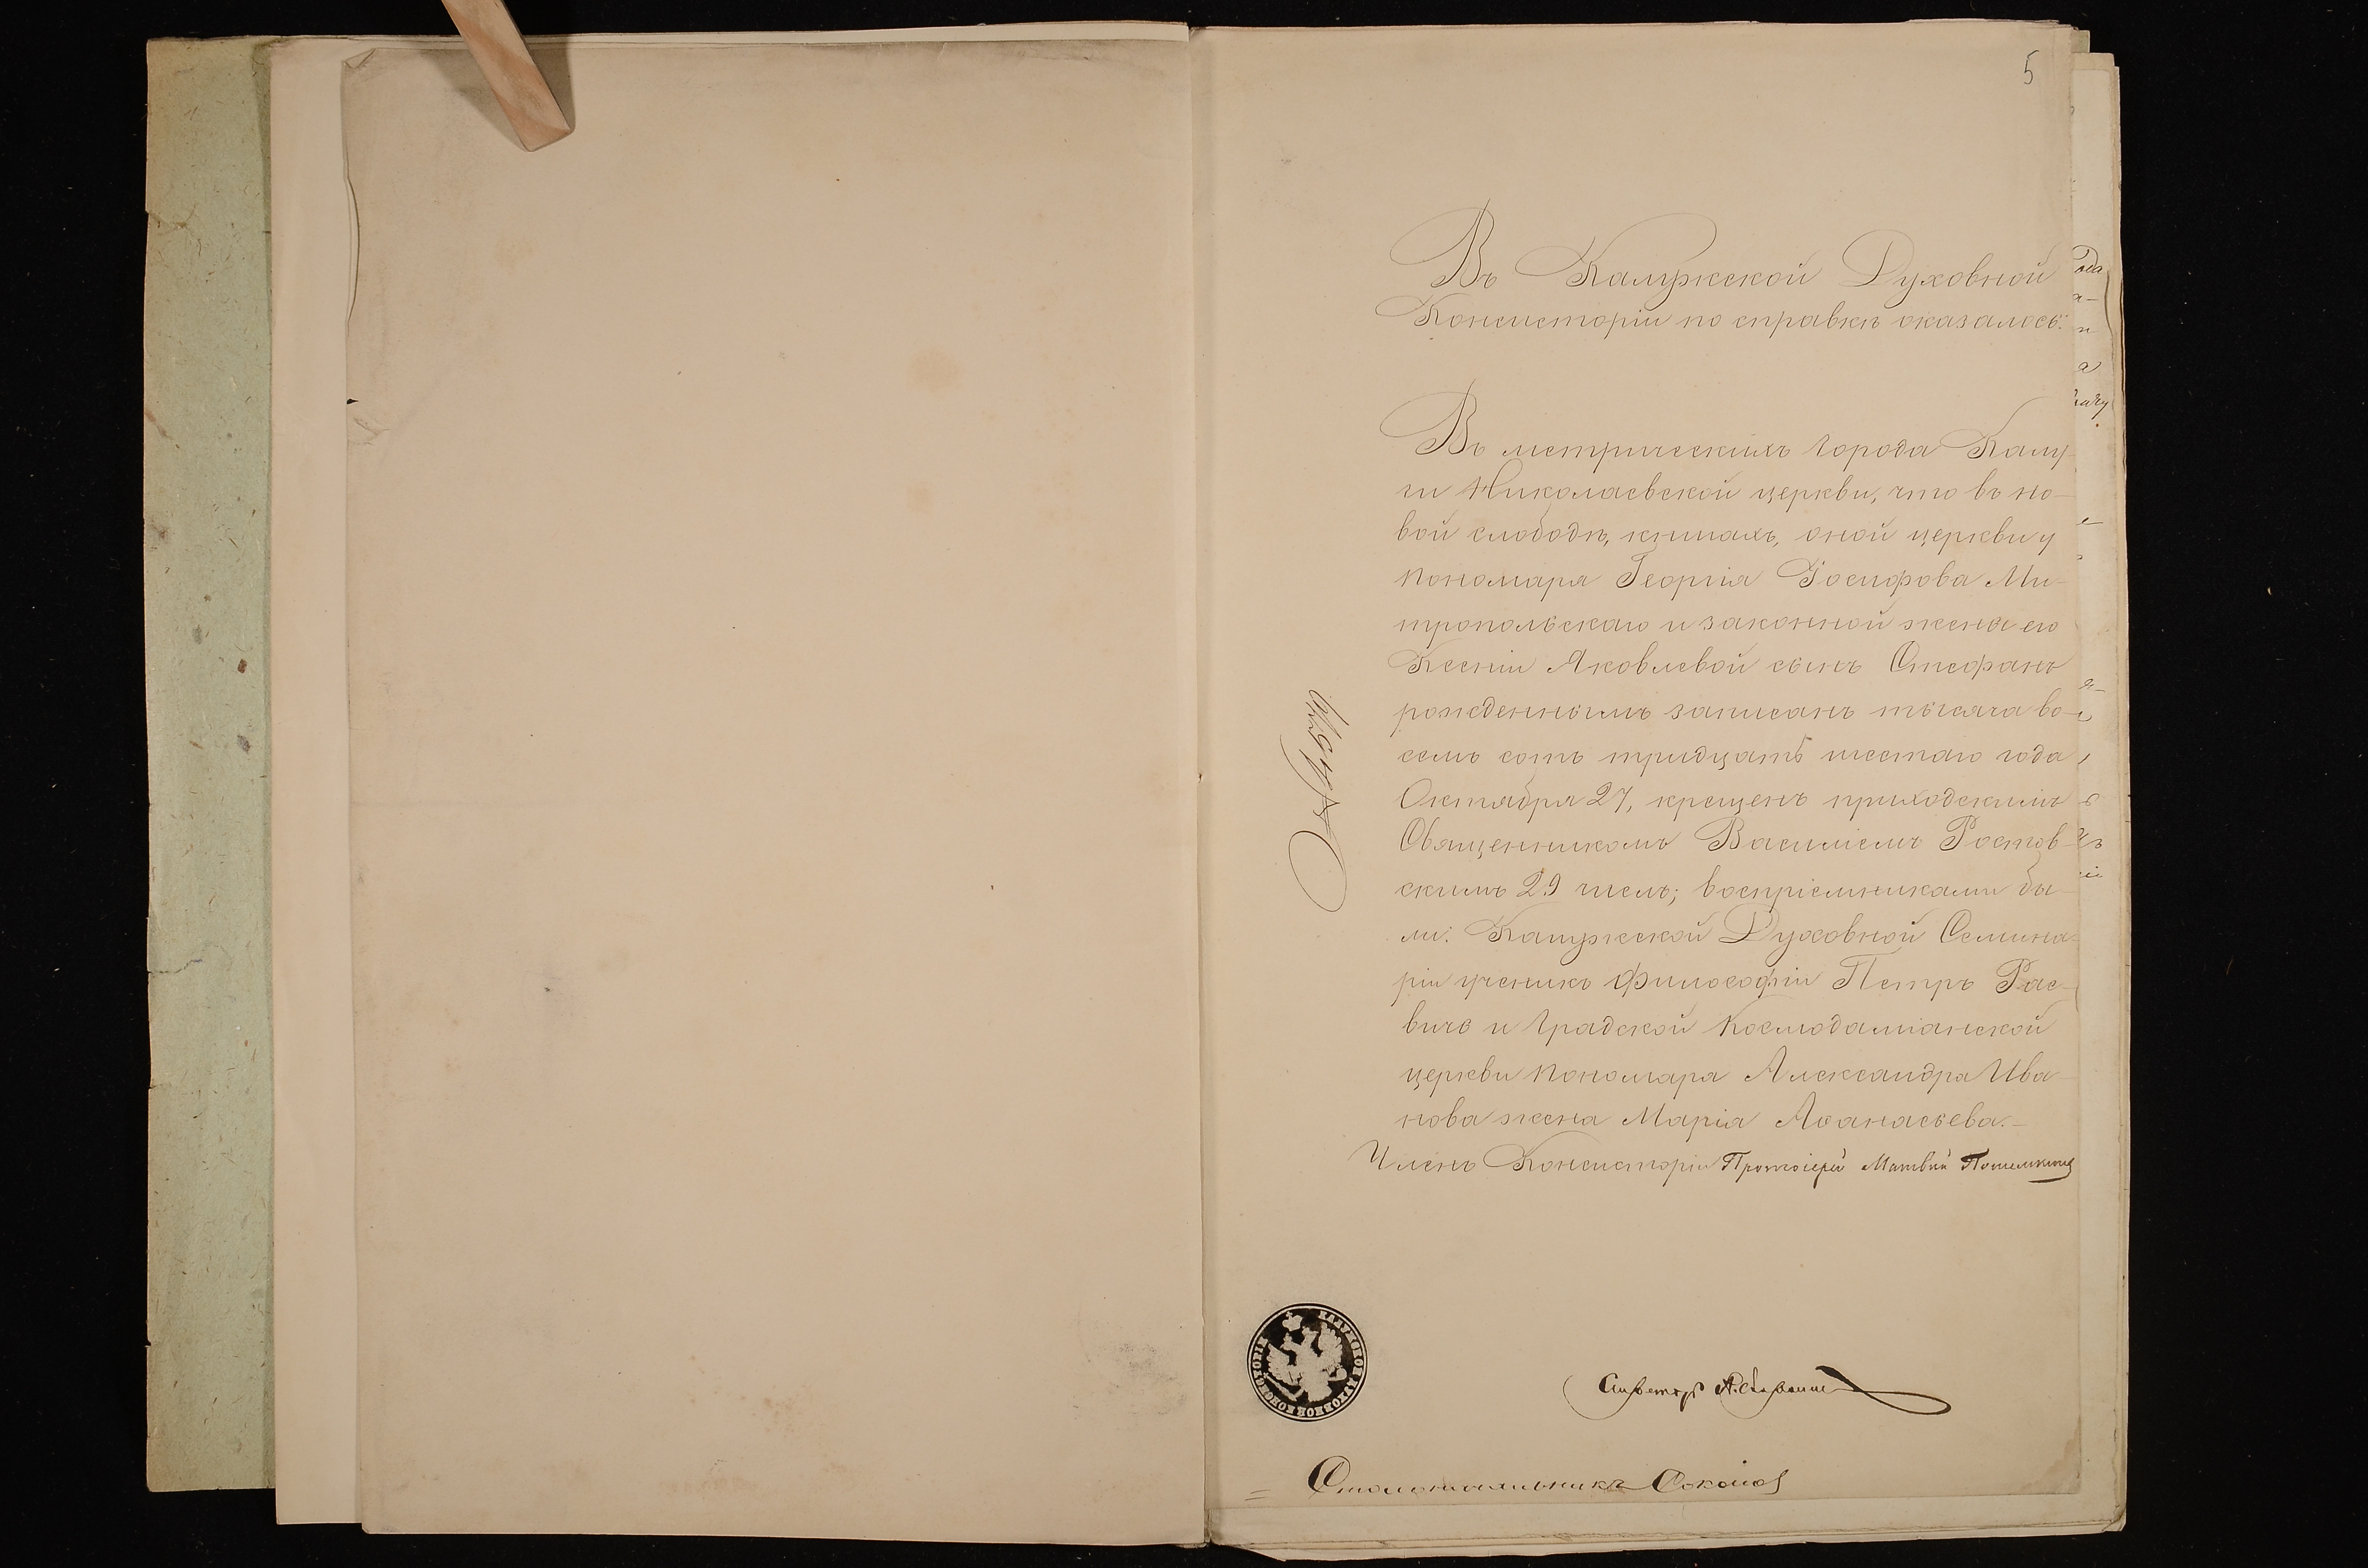 5
Въ Калужской Духовной
Консисторіи по справкѣ оказалось:
Въ метрическихъ города Калу-
ги Николаевской церкви, что въ но-
вой слободѣ, книгахъ, оной церкви у
пономаря Георгія Іосифова Ми-
тропольскаго и законной жены его
Ксеніи Яковлевой сынъ Стефанъ
рожденнымъ записанъ тысяча во-
семь сотъ тридцать шестаго года
Октября 27, крещенъ приходскимъ
Священникомъ Василіемъ Ростов-
скимъ 29 числъ; воспріемниками бы-
ли: Калужской Духовной Семина-
ріи ученикъ философіи Петръ Рае-
вичъ и градской Космодаміанской
церкви пономаря Александра Ива-
нова жена Марія Аѳанасьева.-
Членъ Консисторіи Протоіерей Матвѣй
Столоначальникъ Соколов